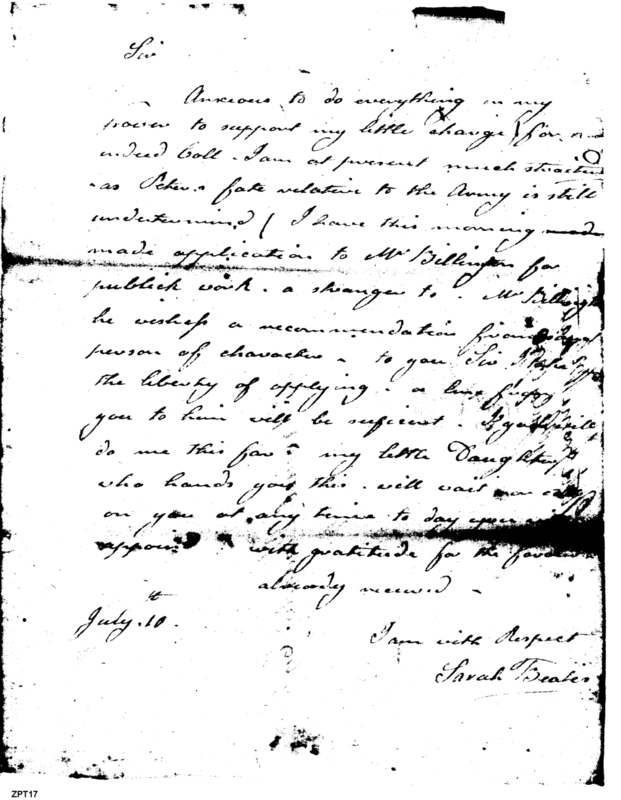 Sir
Anxious to do everything in my
power to support my little charge for
indeed Coll. I am at present much
as Peters fate relative to the Army is still
undetermined I have this morning made
made application to Mr Billington for
publick work. a stranger to. Mr
he wishess a recommendation from
person of character. to you Sir I
the liberty of applying. a line from
you to him will be suficient. If you will
do me this favr. my little Daughter
who hands you this. will wait
on you at any time to day you
appoint. with gratitude for the favour
already received -
July. 10th.
I am with Respect
Sarah Beates
ZPT17